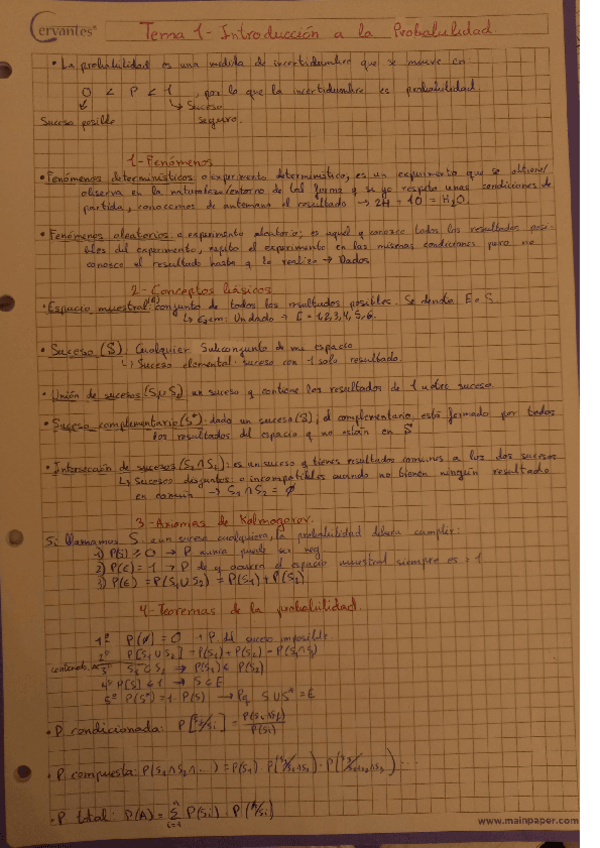 Cervantes
Tema 1 - Introducción a la Probabilidad.
• La probabilidad es una medida de incertidumbre que se mueve en
0 < P < 1, por lo que la incertidumbre es probabilidad
↳ Suceso
Suceso posible seguro.
1- Fenómenos
• Fenómenos determinísticos o experimento determinístico, es un experimento que se obtiene/
observa en la naturaleza/entorno de tal forma q si yo respeto unas condiciones de
partida, conocemos de antemano el resultado → 2H + 1O = H2O.
• Fenómenos aleatorios o experimento aleatorio; es aquel q conozco todos los resultados posi-
bles del experimento, repito el experimento en las mismas condiciones pero no
conozco el resultado hasta q lo realizo → Dados
2- Conceptos básicos
• Espacio muestral: conjunto de todos los resultados posibles. Se denota E o S.
↳ Ejem: Un dado → E = 1,2,3,4,5,6.
• Suceso (S): Cualquier Subconjunto de mi espacio
↳ Suceso elemental: suceso con 1 solo resultado.
• Unión de sucesos un suceso q contiene los resultados de 1 u otro suceso
• Suceso complementario (S*): dado un suceso (S); el complementario está formado por todos
los resultados del espacio q no están en S
• Intersección de sucesos: es un suceso q tienes resultados comunes a los dos sucesos
↳ Sucesos disjuntos o incompatibles cuando no tienen ningún resultado
en común → S1 ∩ S2 = ∅
3- Axiomas de Kolmogorov.
Si llamamos S a un suceso cualquiera, la probabilidad debera cumplir:
1) P(S) ≥ 0 → P nunca puede ser neg
2) P(E) = 1 → P de q ocurra el espacio muestral siempre es 1
3) P(E) = P(S1 ∪ S2) = P(S1) + P(S2)
4- Teoremas de la probabilidad.
1º P(∅) = 0 → P del suceso imposible
2º P[S1 ∪ S2] = P(S1) + P(S2) - P(S1 ∩ S2)
contenido 3º S1 ⊂ S2 → P(S1) ≤ P(S2)
4º P[S] ≤ 1 → S ⊂ E
5º P(S*) = 1 - P(S) → Pq S ∪ S* = E
• P condicionada:
• P compuesta:
• P total: P(A) = Σ P(Si) · P(A/Si)
www.mainpaper.com